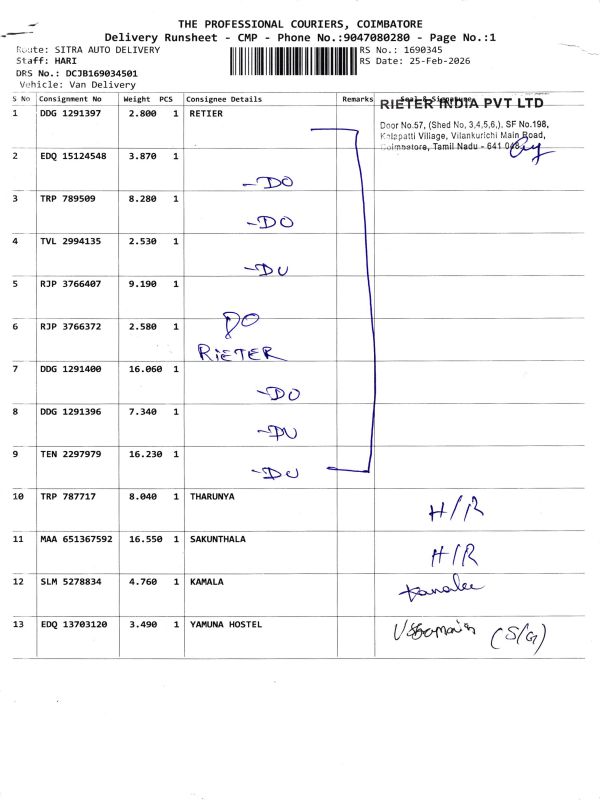 THE PROFESSIONAL COURIERS, COIMBATORE
Delivery Runsheet - CMP - Phone No.:9047080280 - Page No.:1
Route: SITRA AUTO DELIVERY
RS No.: 1690345
Staff: HARI
RS Date: 25-Feb-2026
DRS No.: DCJB169034501
Vehicle: Van Delivery
S No Consignment No Weight PCS Consignee Details Remarks
RIETER INDIA PVT LTD
Door No.57, (Shed No, 3,4,5,6,). SF No.198,
Kalappatti Village, Vilankurichi Main Road,
Coimbatore, Tamil Nadu - 641 048
1 DDG 1291397 2.800 1 RETIER
2 EDQ 15124548 3.870 1
-DO
3 TRP 789509 8.280 1
-DO
4 TVL 2994135 2.530 1
-DO
5 RJP 3766407 9.190 1
DO
6 RJP 3766372 2.580 1
RIETER
7 DDG 1291400 16.060 1
-DO
8 DDG 1291396 7.340 1
-DO
9 TEN 2297979 16.230 1
-DO
10 TRP 787717 8.040 1 THARUNYA
H/R
11 MAA 651367592 16.550 1 SAKUNTHALA
H/R
12 SLM 5278834 4.760 1 KAMALA
13 EDQ 13703120 3.490 1 YAMUNA HOSTEL
(S/G)